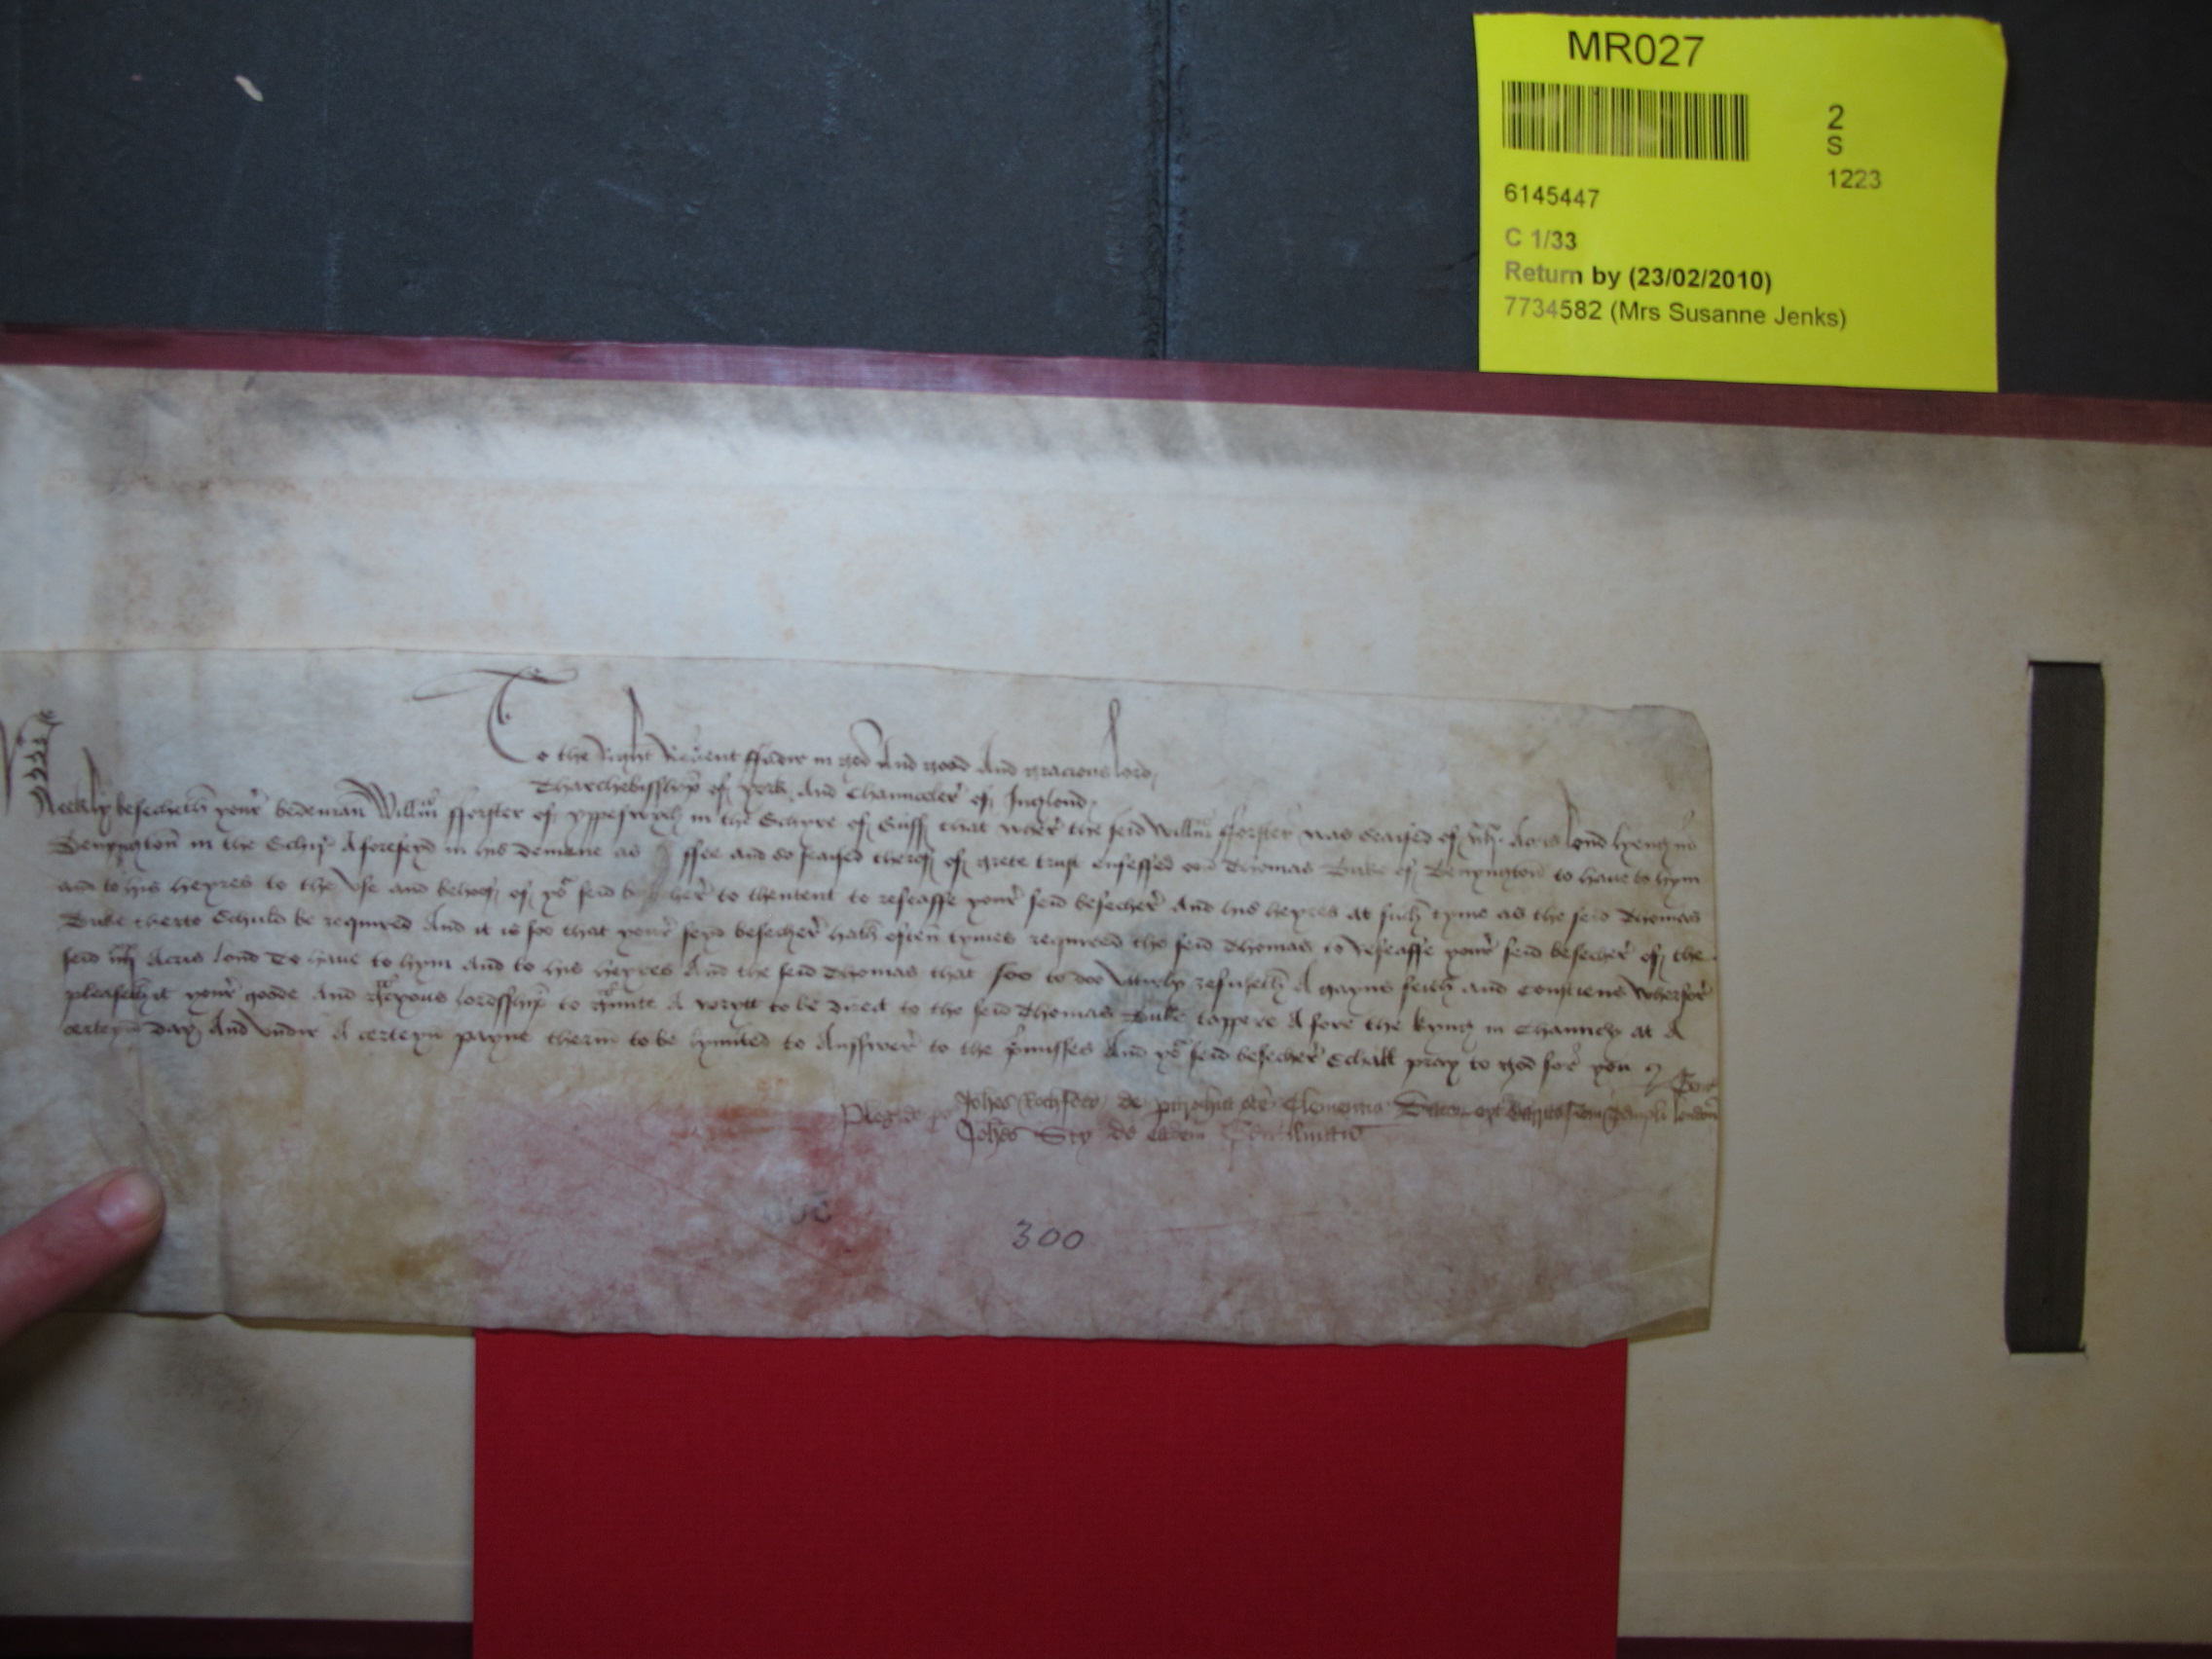 MR027
2
S
1223
6145447
C 1/33
Return by (23/02/2010)
7734582 (Mrs Susanne Jenks)
To the Right Reverent ffader in god And good And gracious lord
Tharchebisshop of york And Chaunceler of Inglond
Mekely besecheth your bedeman Willm fforster of yppeswych in the Schyre of Suff that wher the seid Willm fforster was seaised of Acris lond lyeng in
Benyngton in the Schyr Aforeseyd in his demene as ffee and so seaised therof of grete trust enfeffed on Thomas Duke of Benyngton to haue to hym
and to his heyres to the Vse and behoof of yor seid besecher to thentent to refeaffe your seid besecher And his heyres at such tyme as the seid Thomas
Duke therto Schuld be required And it is soo that your seyd besecher hath often tymes requireed the seid Thomas to refeaffe your seid besecher of the
seid Acris lond To haue to hym And to his heyres And the seid Thomas that soo to doo Vtturly refuseth A gayns feith and Consciens Wherfor
pleaseth it your goode And gracyous lordsship to graunte A wrytt to be direct to the seid Thomas Duke tappere A fore the kyng in Chauncery at A
certeyn day And Vndir A certeyn payne therin to be lymited to Answer to the premisses And yor seid besecher Schall pray to god for you
Pleg de Johes de parochia sce Clementis london
Johes de eadem
300